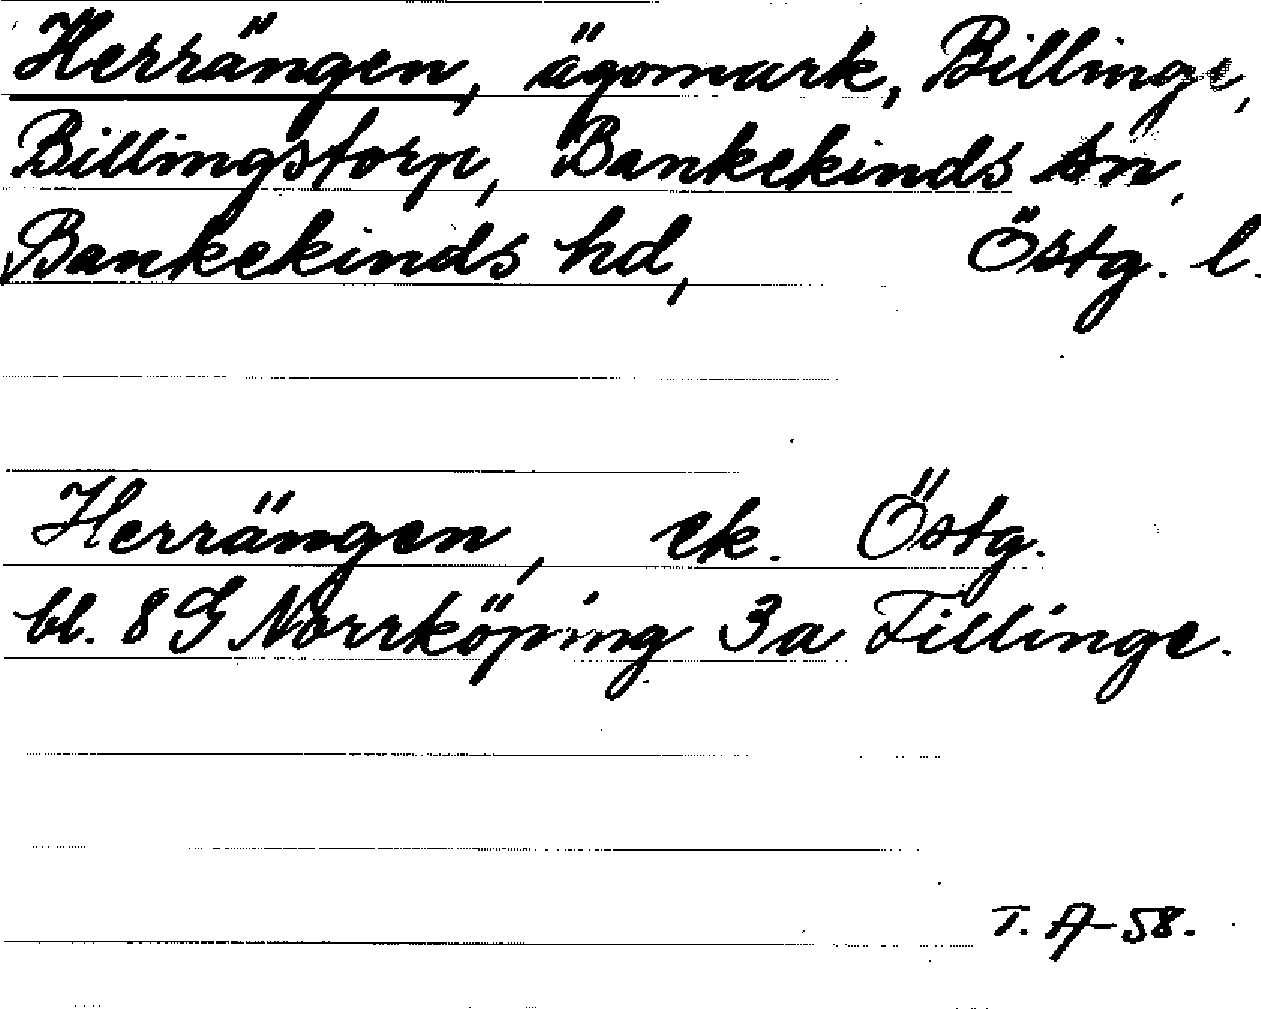 Herrängen, ägomark, Billinge,
Billingstorp, Bankekinds sn,
Bankekinds hd, Östg. l.
Herrängen, ek. Östg.
bl. 8 G Norrköping 3a Fillinge.
T. A-58.